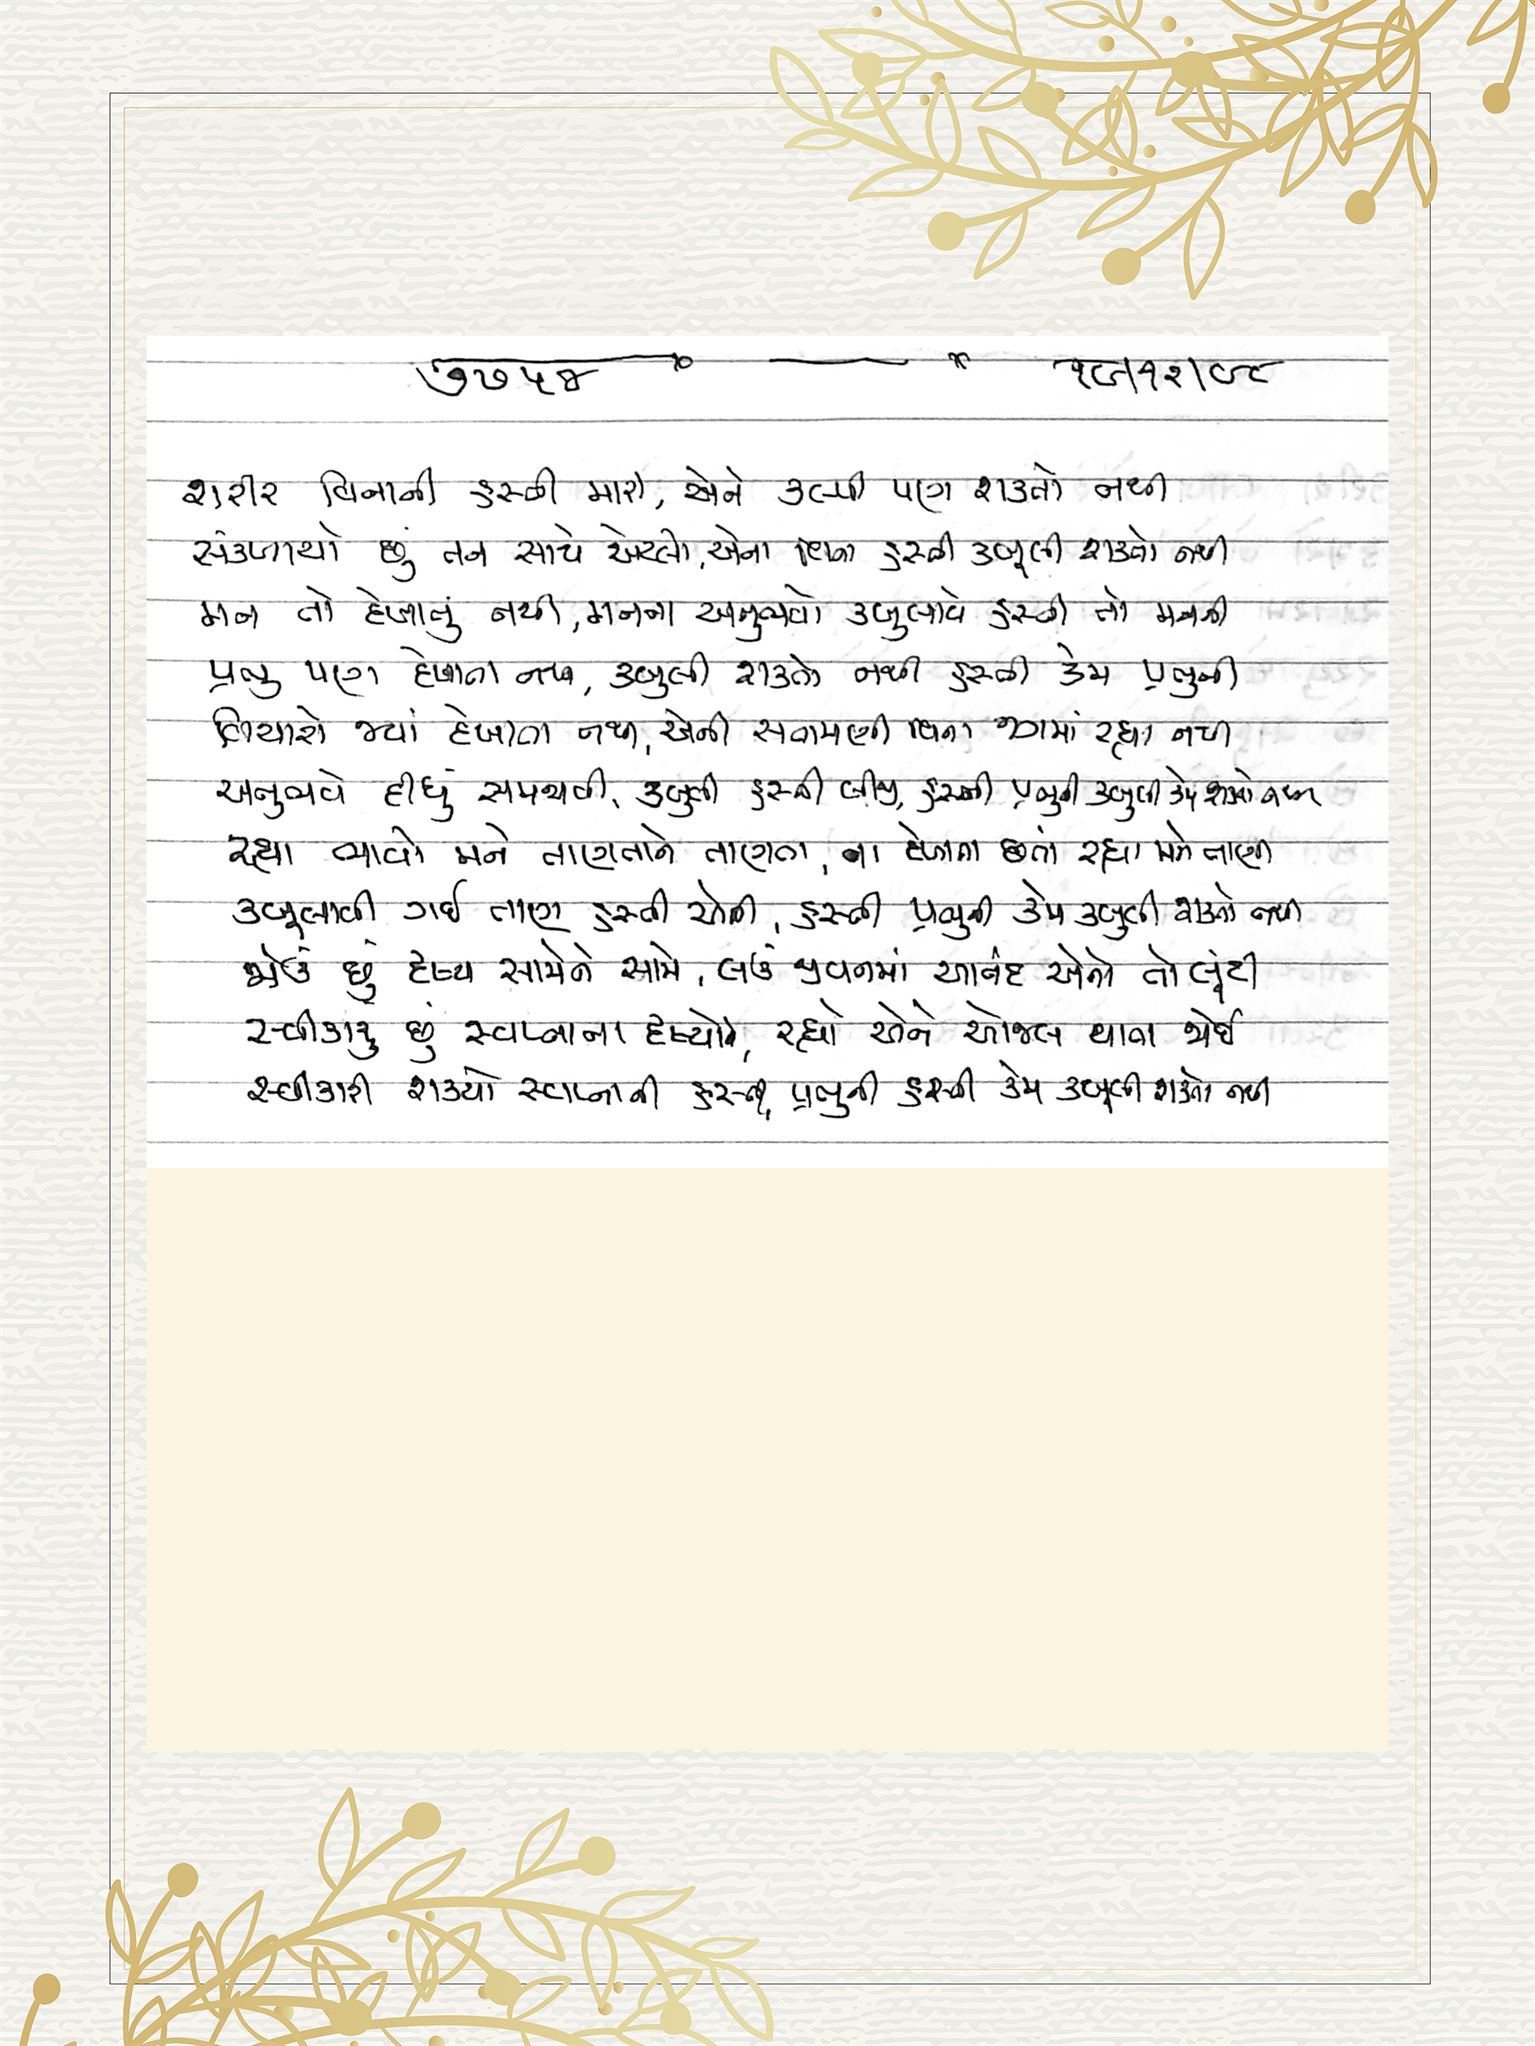 ૭૭૫૪ ૧૮/૧૨/૯૮
શરીર વિનાની હસ્તી મારી, એને કલ્પી પણ શક્તો નથી
સંકળાયો છું તન સાથે એટલો, એના વિના હસ્તી કબૂલી શક્તો નથી
મન તો દેખાતું નથી, મનના અનુભવો કબુલાવે હસ્તી તો મનની
પ્રભુ પણ દેખાતા નથી, કબુલી શક્તો નથી હસ્તી કેમ પ્રભુની
વિચારો જ્યાં દેખાતા નથી, એની સતામણી વિના જગમાં રહ્યા નથી
અનુભવે દીધું સમજાવી, કબુલી હસ્તી બીજી, હસ્તી પ્રભુની કબુલી કેમ શક્તો નથી
રહ્યા ભાવો મને તાણતાને તાણતા, ના દેખાતા છતાં રહ્યા મને તાણી
કબૂલાવી ગઈ તાણ હસ્તી એની, હસ્તી પ્રભુની કેમ કબુલી શક્તો નથી
જોઉં છું દૃશ્ય સામેને સામે, લઉં જીવનમાં આનંદ એનો તો લૂંટી
સ્વીકારું છું સ્વપ્નાના દૃશ્યો, રહ્યો એને ઓજલ થાતા જોઈ
સ્વીકારી શક્યો સ્વપ્નાની હસ્તી, પ્રભુની હસ્તી કેમ કબૂલી શક્તો નથી